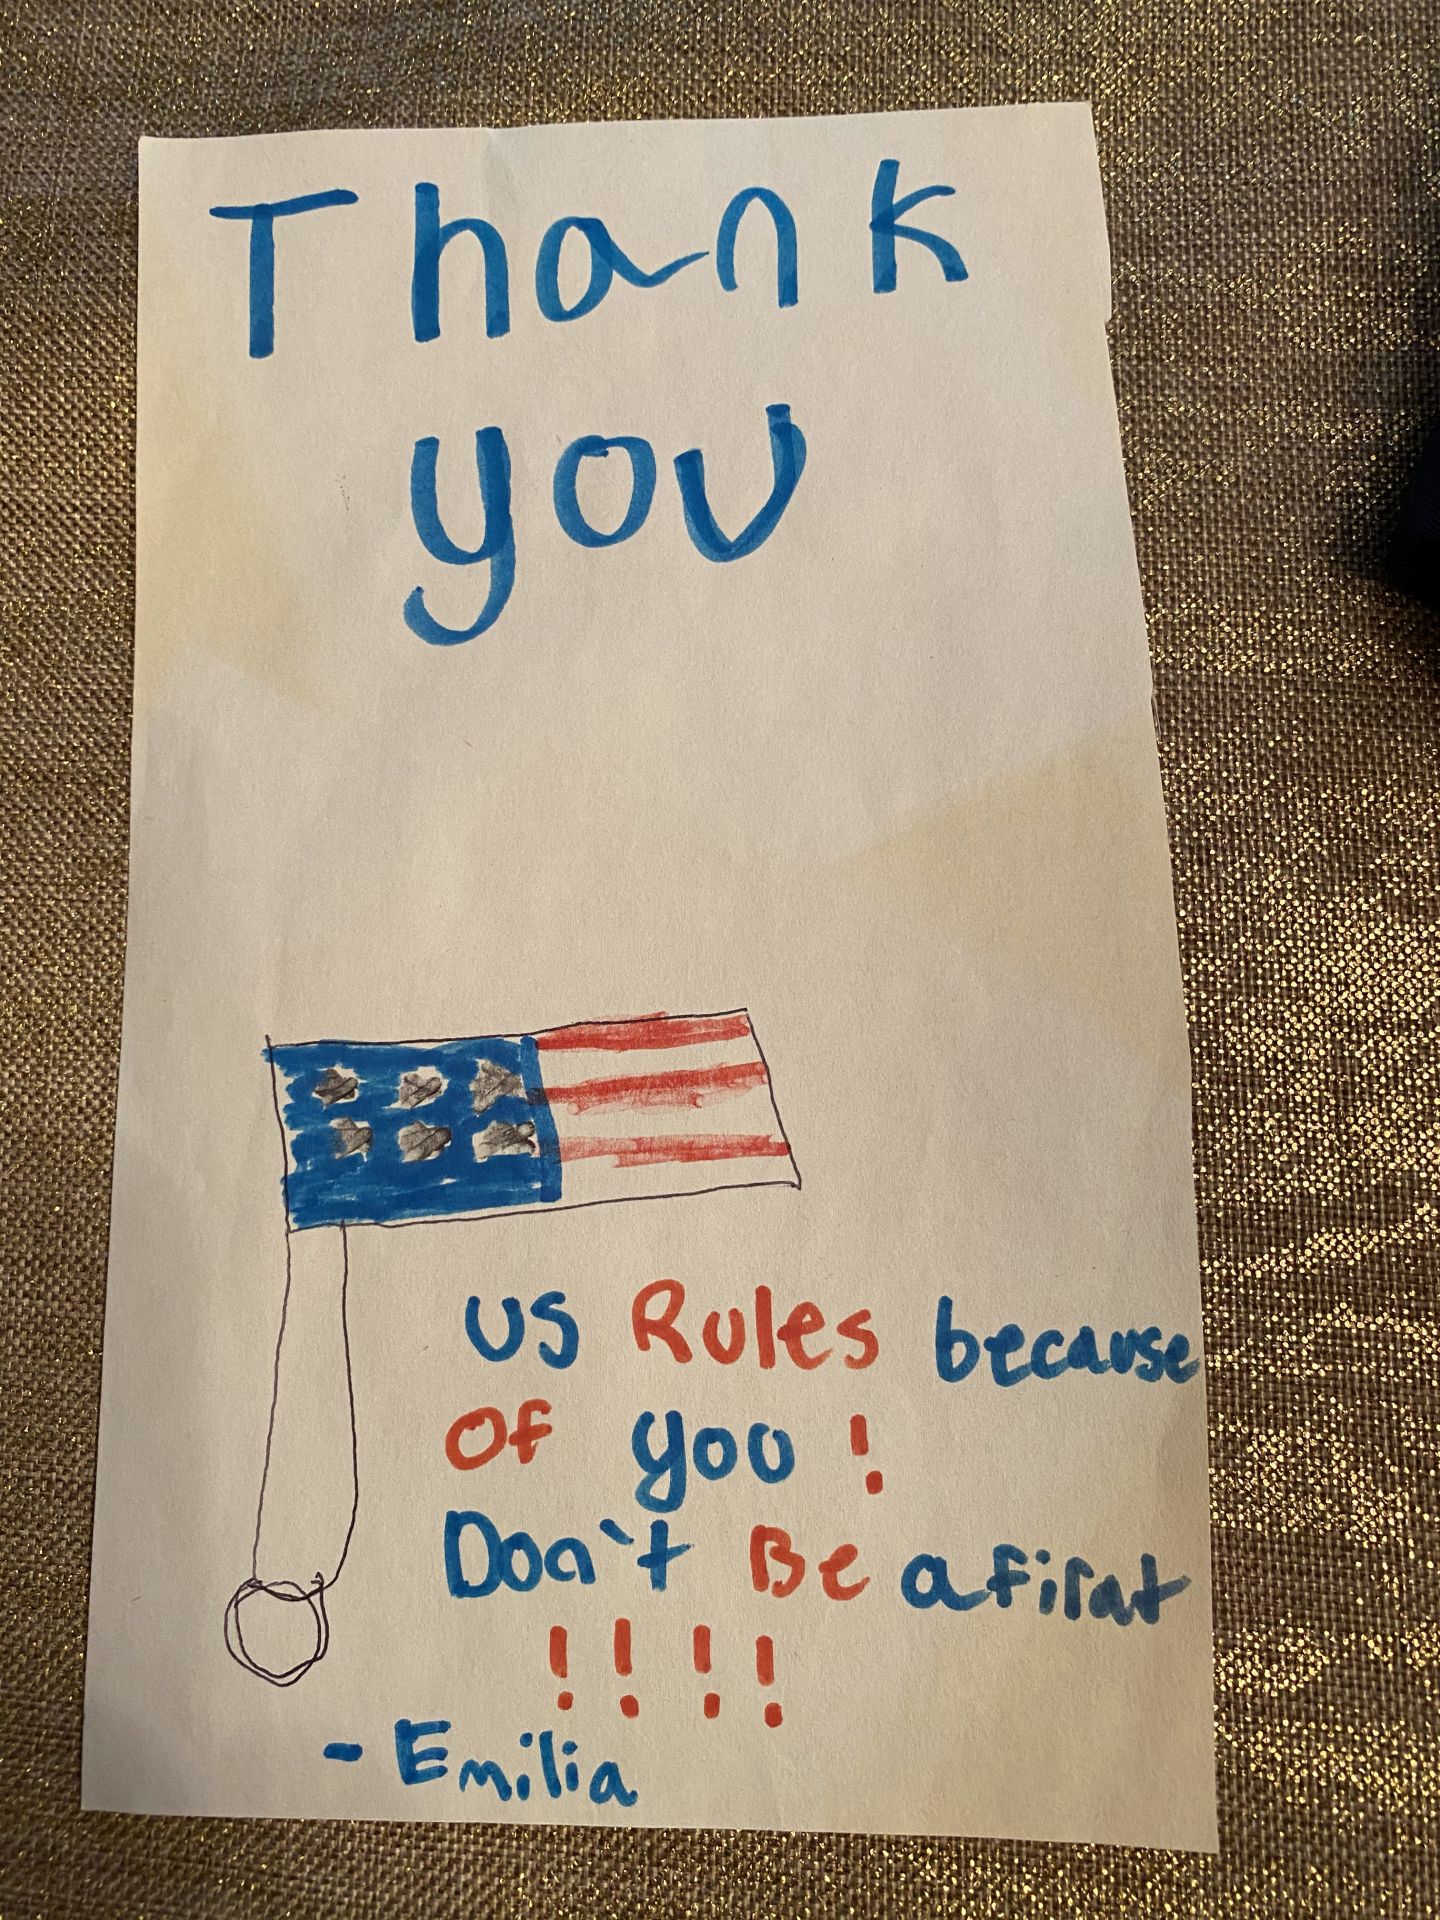 Thank
you
US Rules because
Of you !
Don't Be afirat
!!!!
- Emilia